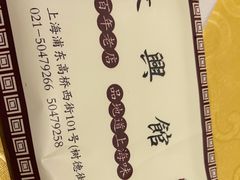 興館
百年老店 品地道上海味
上海浦东高桥西街101号(树德
021-50479266 50479258